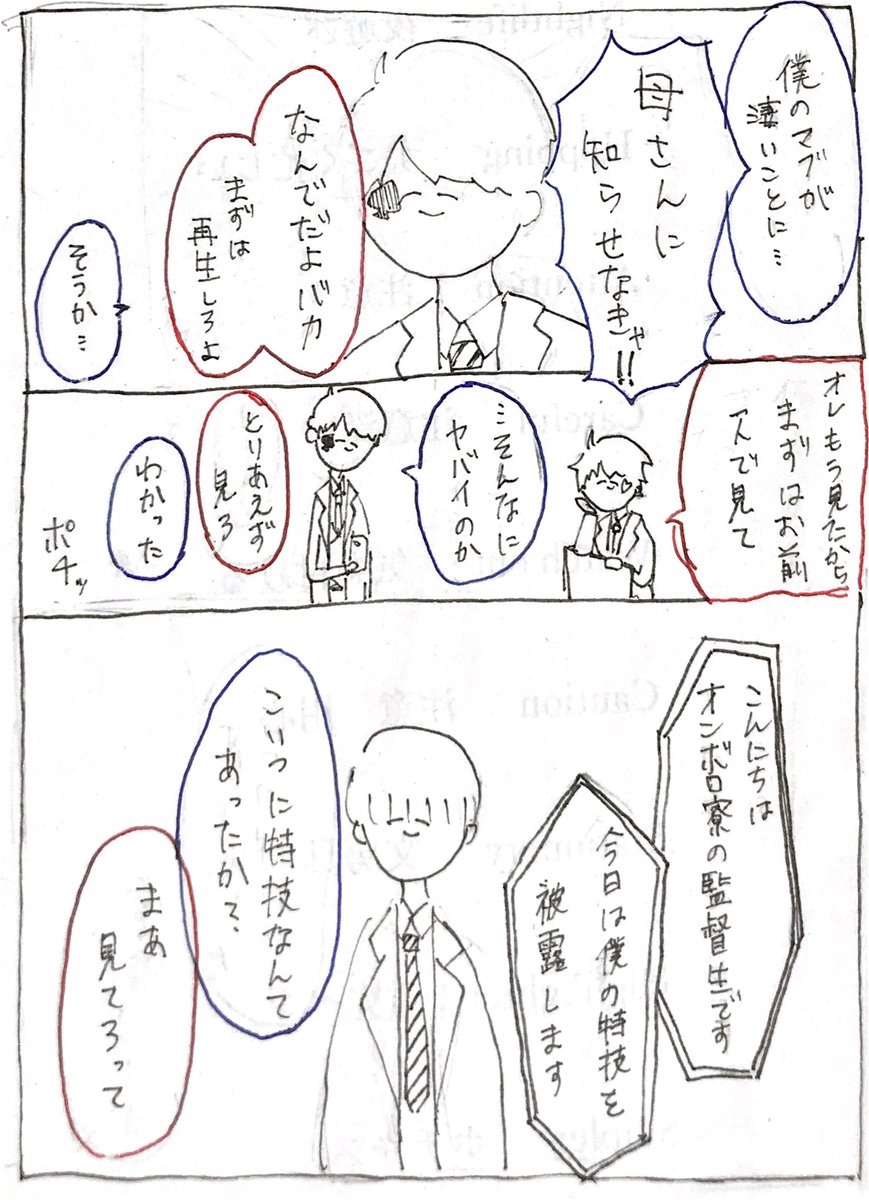 僕のマブが
凄いことに…
母さんに
知らせなきゃ!!
なんでだよバカ
まずは
再生しろよ
そうか…
オレもう見たから
まずはお前
一人で見て
…そんなに
ヤバイのか
とりあえず
見ろ
わかった
ポチッ
こんにちは
オンボロ寮の監督生です
今日は僕の特技を
披露します
こいつに特技なんて
あったか?
まあ
見てろって